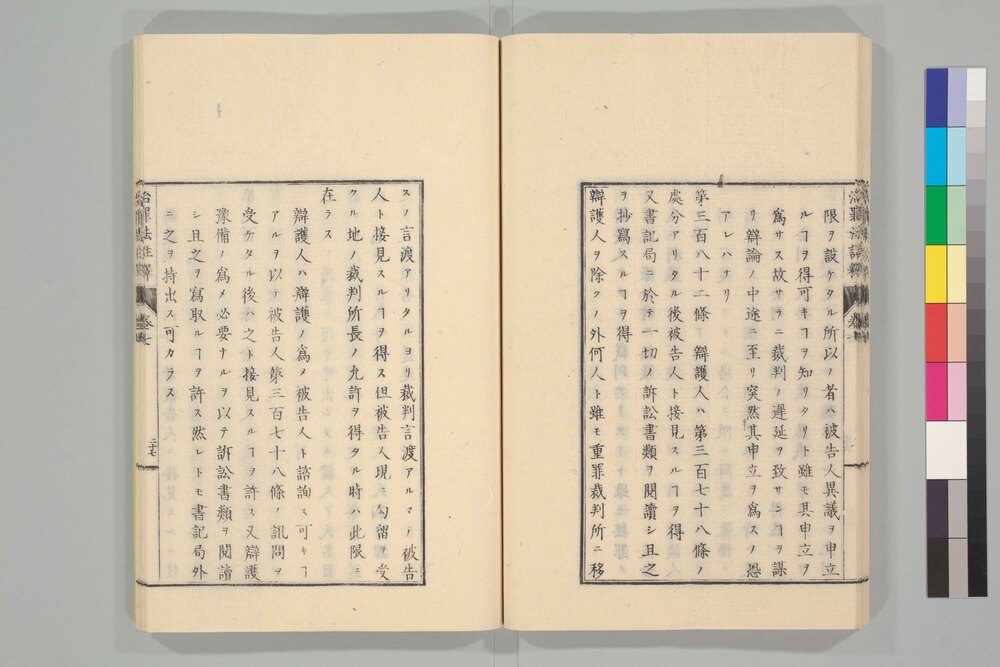 限ヲ設ケタル所以ノ者ハ被告人異議ヲ申立
ルヿヲ得可キヿヲ知リタリト雖モ其申立ヲ
爲サス故サラニ裁判ノ遲延ヲ致サンヿヲ謀
リ辯論ノ中途ニ至リ突然其申立ヲ爲スノ恐
アレハナリ
第三百八十二條 辯護人ハ第三百七十八條ノ
處分アリタル後被告人ト接見スルヿヲ得
又書記局ニ於テ一切ノ訴訟書類ヲ閲讀シ且之
ヲ抄寫スルヿヲ得
辯護人ヲ除クノ外何人ト雖モ重罪裁判所ニ移
スノ言渡アリタルヨリ裁判言渡アルマテ被告
人ト接見スルヿヲ得ス但被告人現ニ勾留ヲ受
クル地ノ裁判所長ノ允許ヲ得タル時ハ此限ニ
在ラス
辯護人ハ辯護ノ爲メ被告人ト諮詢ス可キヿ
アルヲ以テ被告人第三百七十八條ノ訊問ヲ
受ケタル後ハ之ト接見スルヿヲ許ス又辯護
豫備ノ爲メ必要ナルヲ以テ訴訟書類ヲ閲讀
シ且之ヲ寫取ルヿヲ許ス然レトモ書記局外
ニ之ヲ持出ス可カラス
治罪法註釋 卷七 二十七